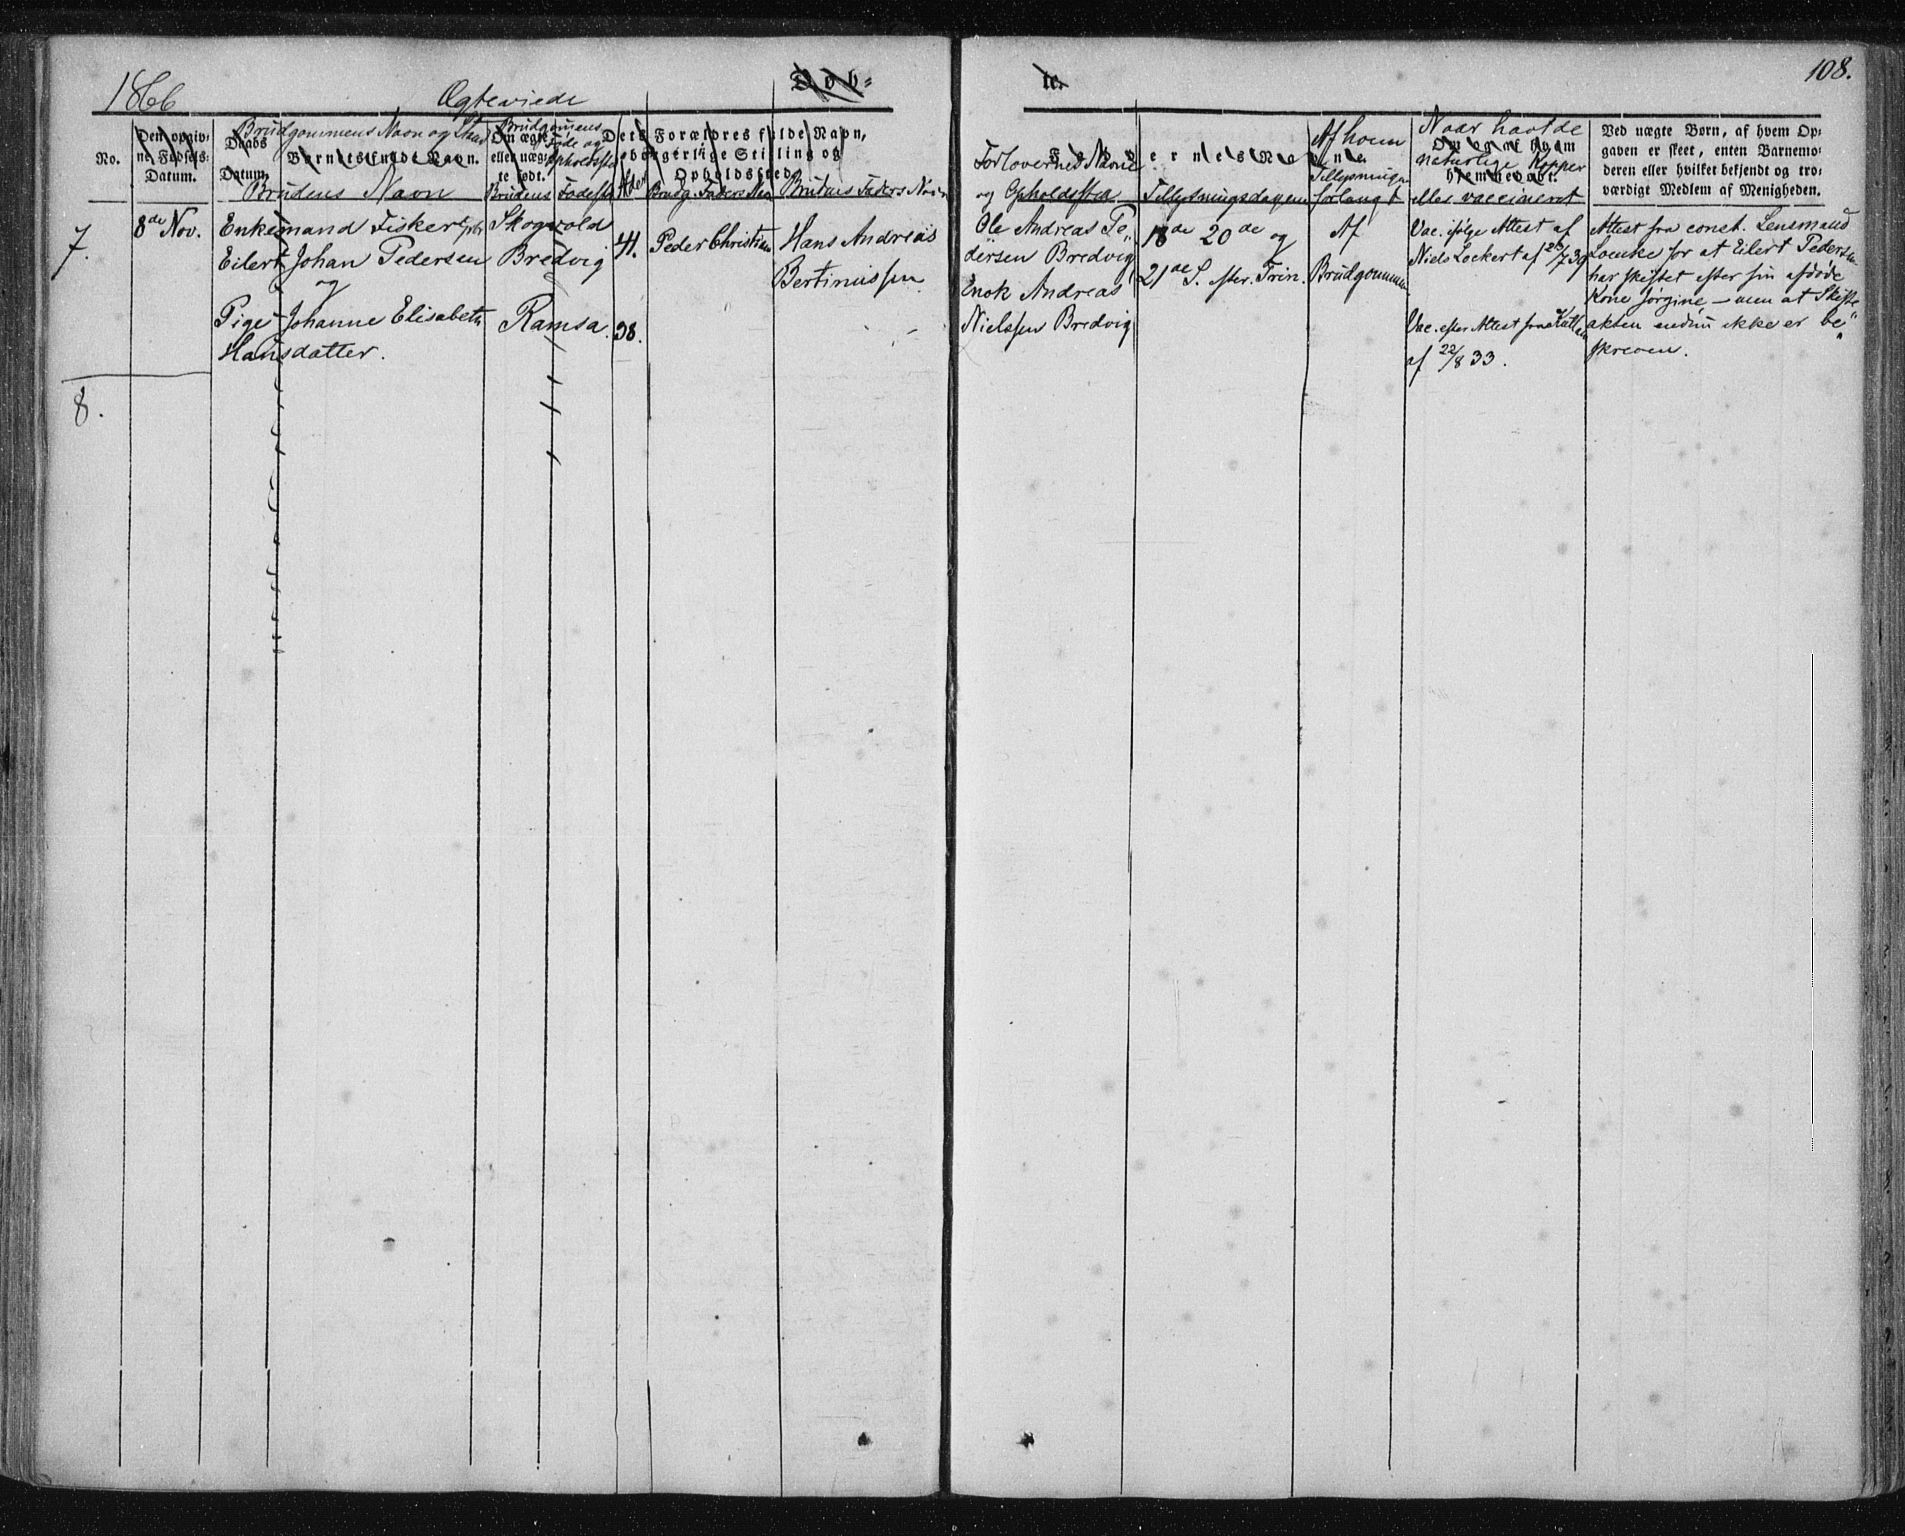 1866
Ægteviede
Døb-
te.
108.
No.
Den opgiv-
ne Fødsels-
Datum.
Brudgommens Navn og Stand
Daabs
Datum.
Barnets fulde Navn.
Brudens Navn
Brudgommens
Føde og
Opholdssted
Om ægte
eller uægte
født.
Brudens Fødested
Alder
Dets Forældres fulde Navn,
borgerlige Stilling og
Opholdssted.
Brudg. Faders Navn
Brudens Faders Navn
Forlovernes Navne
og Opholdsted
Faddernes Navne.
Tillysningsdagene
Af hvem
Tillysningen
forlangt
Naar havt de
Om og af hvem
naturlige Kopper
hjemmedøbt.
eller vaccineret
Ved uægte Børn, af hvem Op-
gaven er skeet, enten Barnemo-
deren eller hvilket bekjendt og tro-
værdigt Medlem af Menigheden.
7.
8de Nov.
Enkemand Fisker
Eilert Johan Pedersen
og
Pige Johanne Elisabeth
Hansdatter.
Skogvold
Bredvig
Ramsa
41.
38.
Peder Christian
Hans Andreas
Bertinussen
Ole Andreas Pe-
dersen Bredvig
Enok Andreas
Nielssen Bredvig
18de 20de og
21de S. efter Trin.
Af
Brudgommen
Vac. ifølge Attest af
Niels Lockert af 23/7 39
Vac. efter Attest fra
af 22/8 33.
Attest fra const. Lensmand
for at Eilert Pedersen
har skiftet efter sin afdøde
Kone Jørgine – men at Skifte
akten endnu ikke er be-
skreven.
8.